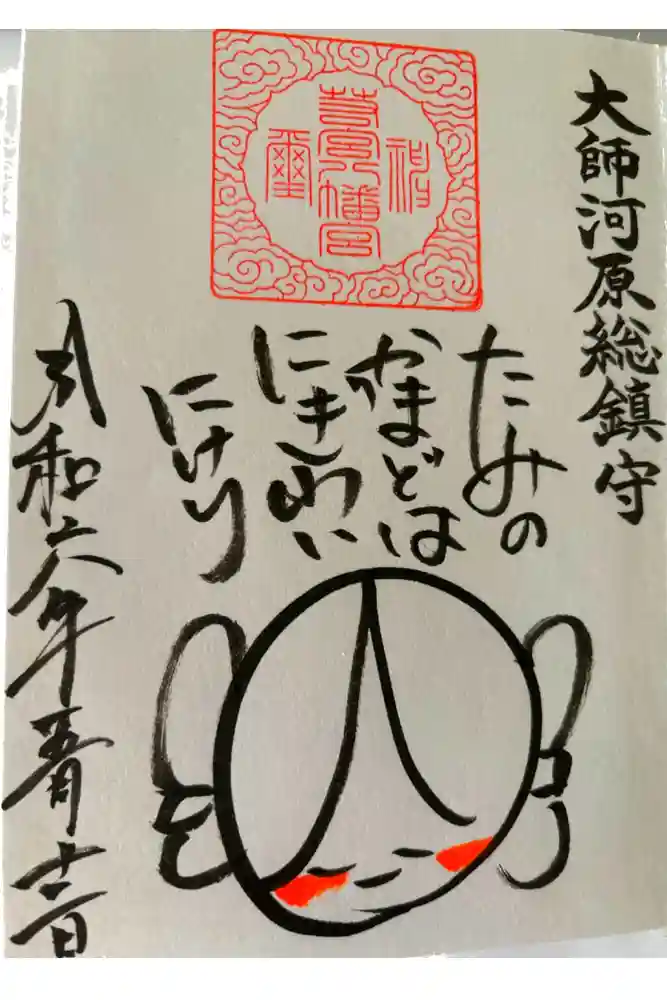 大師河原総鎮守
若宮八幡宮
たみの
かまどは
にきわい
にけり
令和六年五月十二日